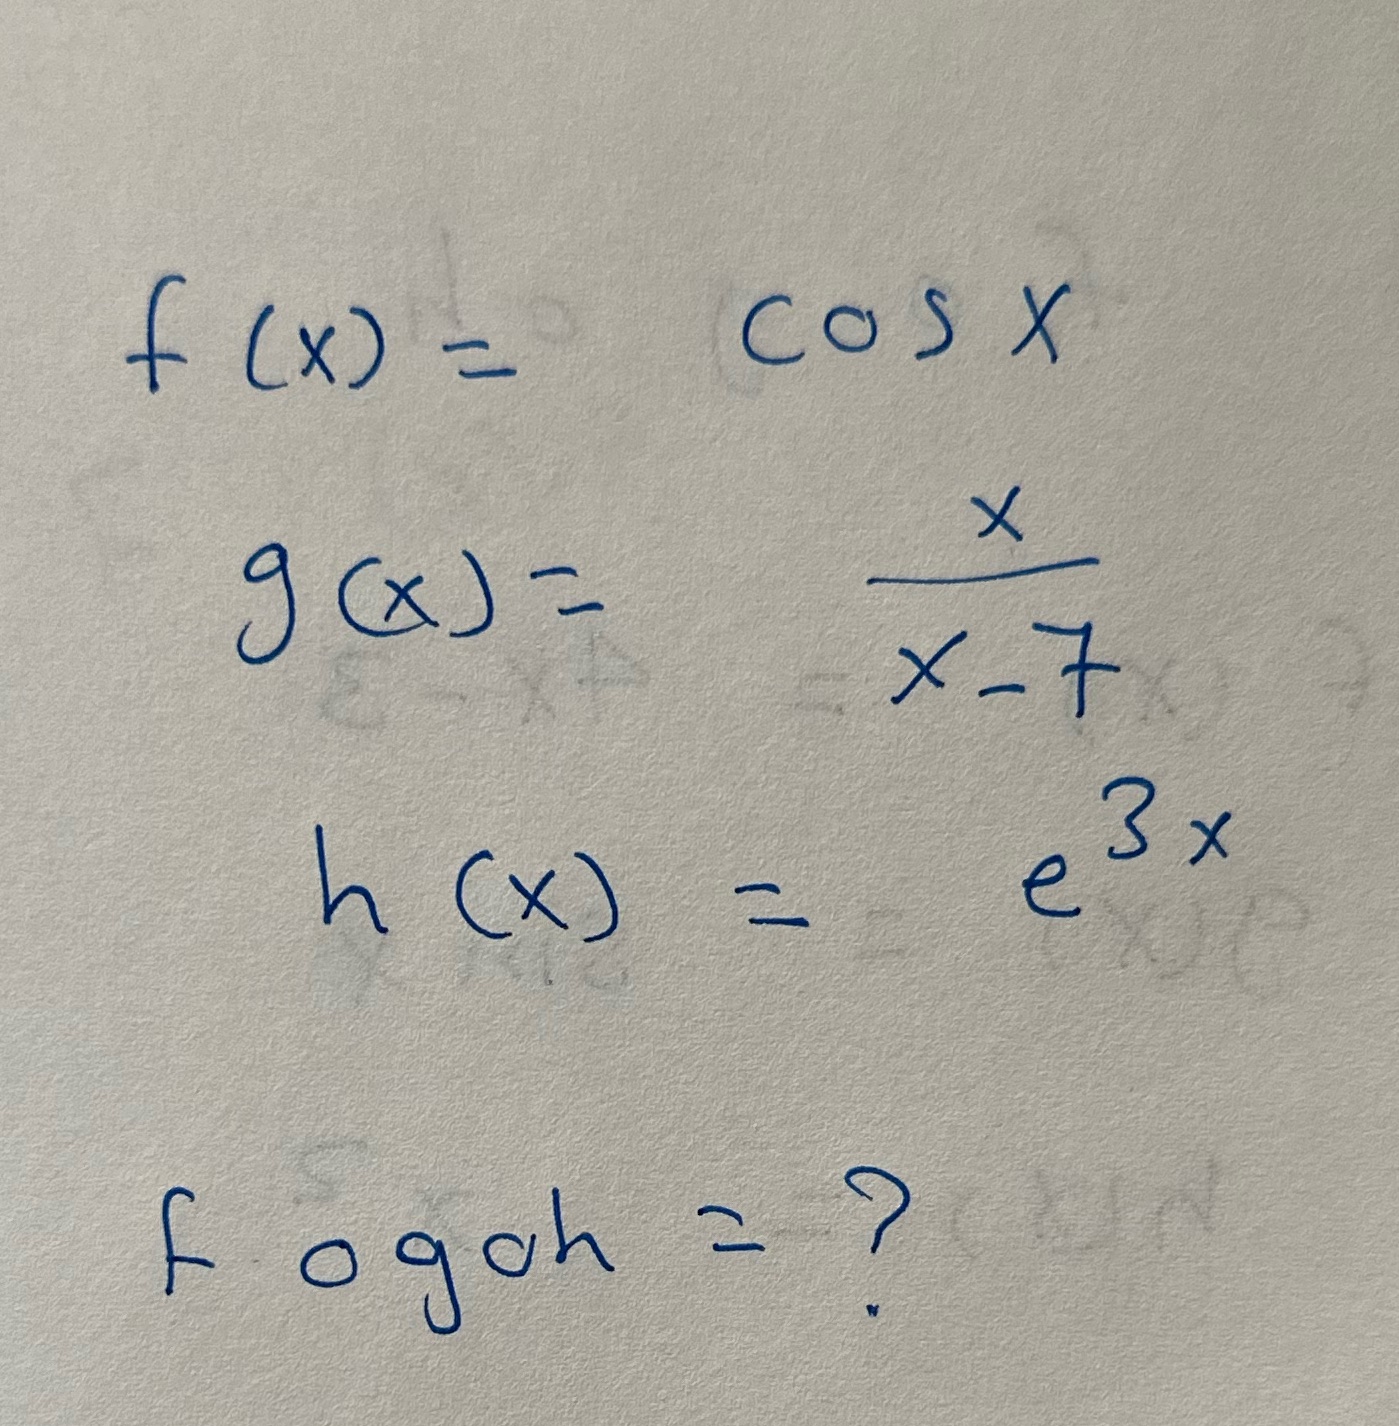 f(x) = cos x
g(x) = x / x - 7
h(x) = e^3x
f o g o h = ?